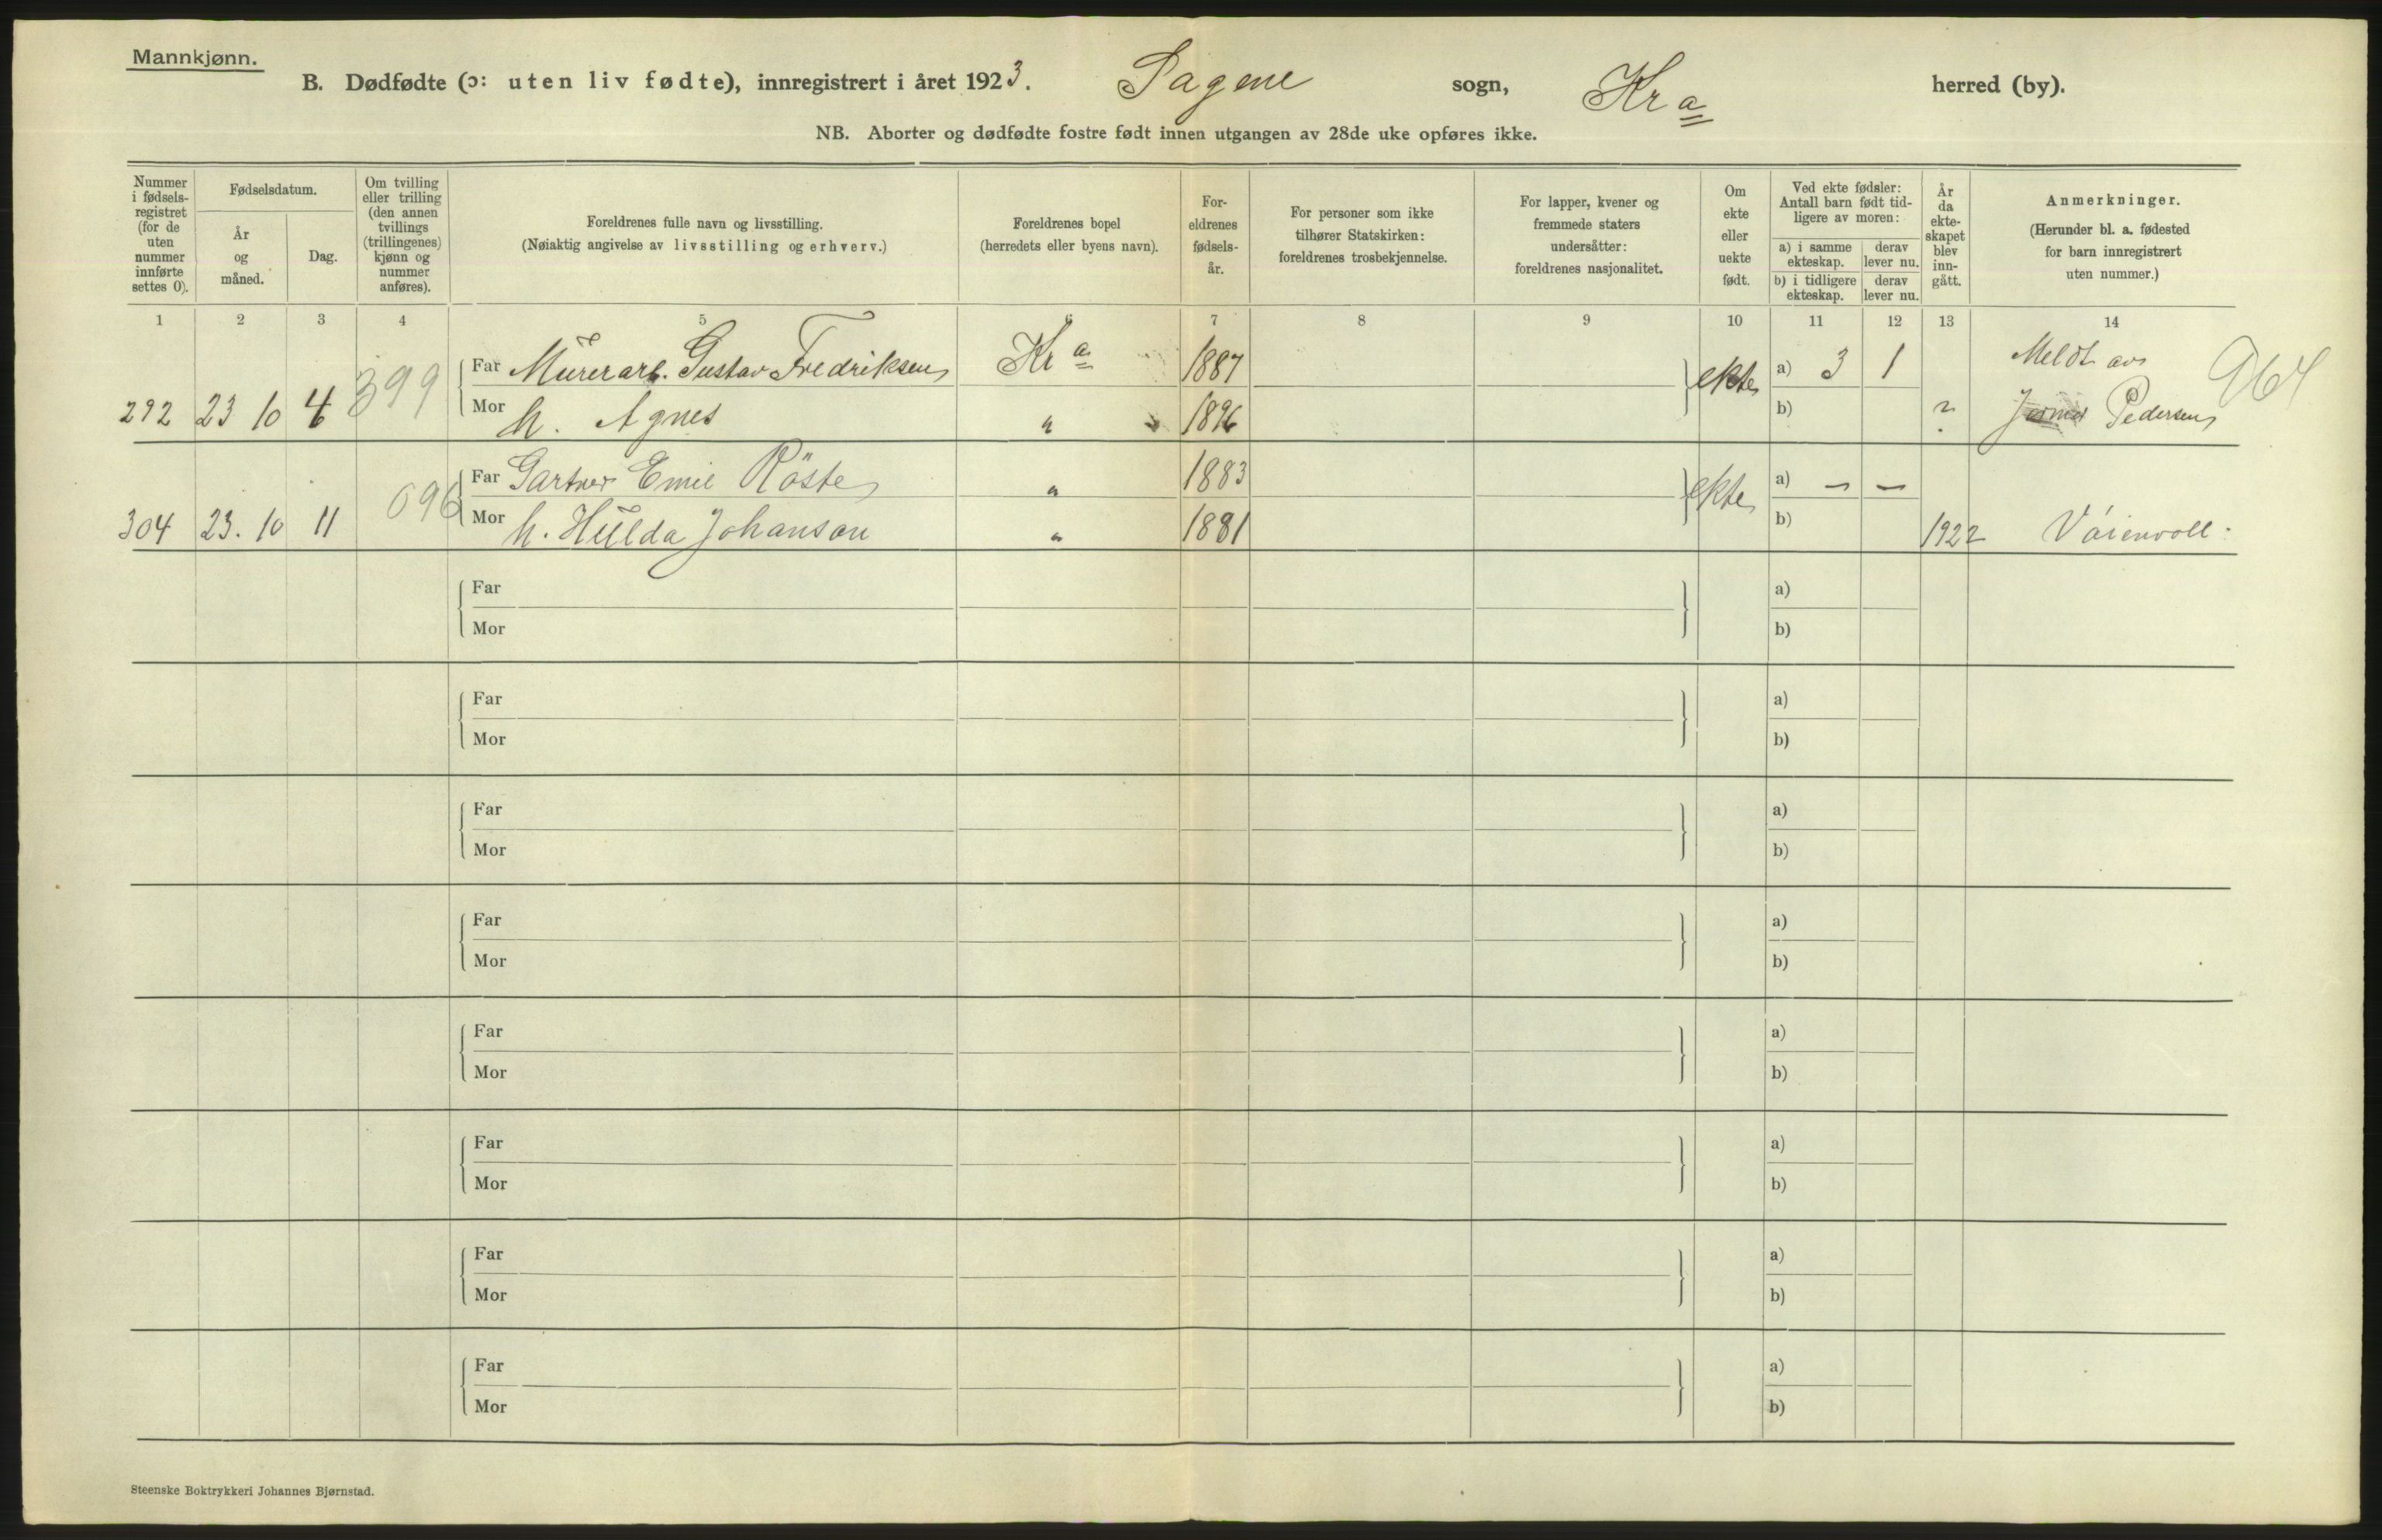 Mannkjønn.
B. Dødfødte (ɔ: uten liv fødte), innregistrert i året 1923. Sagene sogn, Kra herred (by).
NB. Aborter og dødfødte fostre født innen utgangen av 28de uke opføres ikke.
Nummer
i fødsels-
registret
(for de
uten
nummer
innførte
settes 0).
Fødselsdatum.
År
og
måned.
Dag.
Om tvilling
eller trilling
(den annen
tvillings
(trillingenes)
kjønn og
nummer
anføres).
Foreldrenes fulle navn og livsstilling.
(Nøiaktig angivelse av livsstilling og erhverv.)
Foreldrenes bopel
(herredets eller byens navn).
For-
eldrenes
fødsels-
år.
For personer som ikke
tilhører Statskirken:
foreldrenes trosbekjennelse.
For lapper, kvener og
fremmede staters
undersåtter:
foreldrenes nasjonalitet.
Om
ekte
eller
uekte
født.
Ved ekte fødsler:
Antall barn født tid-
ligere av moren:
a) i samme
ekteskap.
derav
lever nu.
b) i tidligere
ekteskap.
derav
lever nu.
År
da
ekte-
skapet
blev
inn-
gått.
Anmerkninger.
(Herunder bl. a. fødested
for barn innregistrert
uten nummer.)
1 2 3 4 5 6 7 8 9 10 11 12 13 14
Far Murerarb. Gustav Fredriksen Kra 1887 ekte a) 3 1 Meldt av 964
292 23 10 4 399 Mor h. Agnes " 1896 b) ? Pedersen
Far Gartner Emil Röste " 1883 ekte a) – –
304 23. 10 11 096 Mor h. Hulda Johanson " 1881 b) 1922 Våienvoll.
Far a)
Mor b)
Far a)
Mor b)
Far a)
Mor b)
Far a)
Mor b)
Far a)
Mor b)
Far a)
Mor b)
Far a)
Mor b)
Far a)
Mor b)
Steenske Boktrykkeri Johannes Bjørnstad.